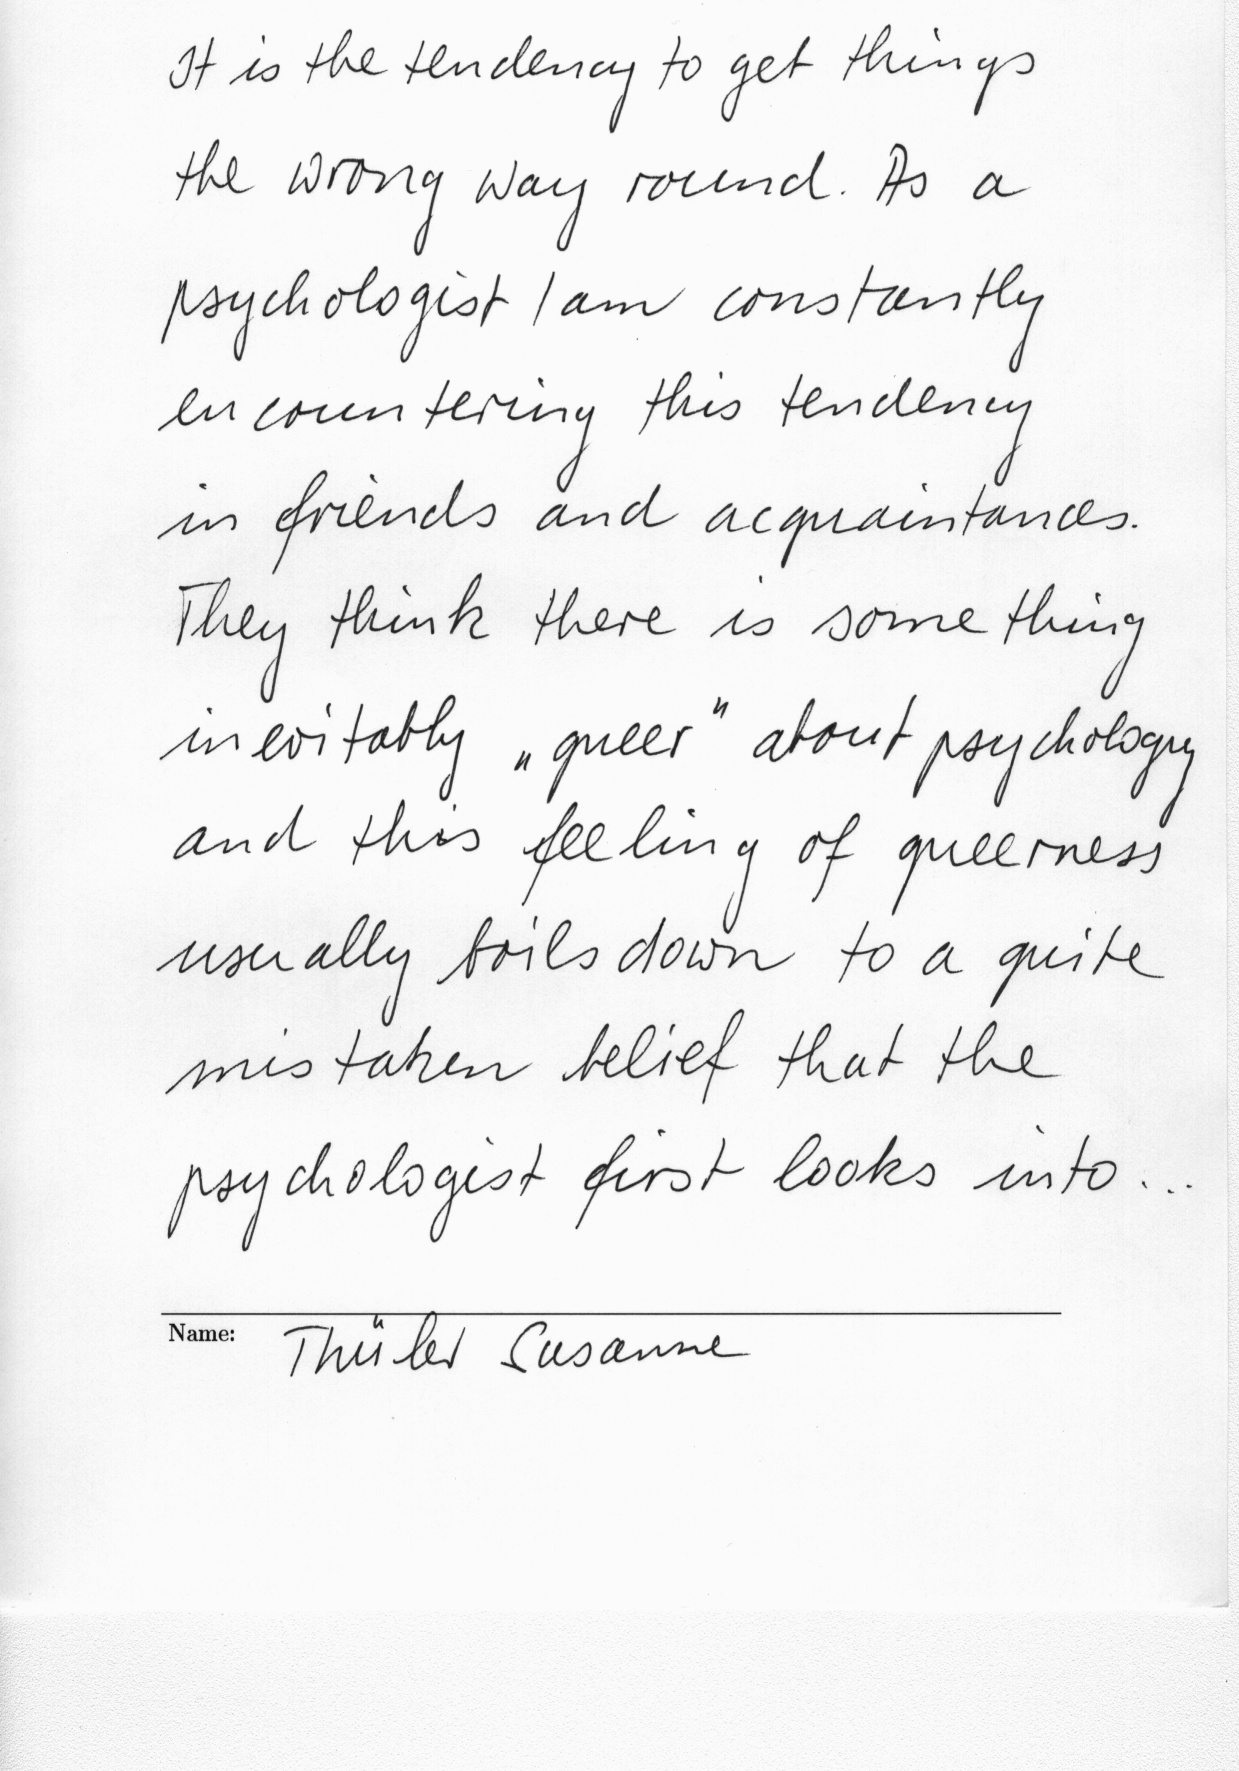 It is the tendency to get things
the wrong way round. As a
psychologist I am constantly
encountering this tendency
in friends and acquaintances.
They think there is something
inevitably „queer" about psychology
and this feeling of queerness
usually boils down to a quite
mistaken belief that the
psychologist first looks into...
Name: Thüler Susanne